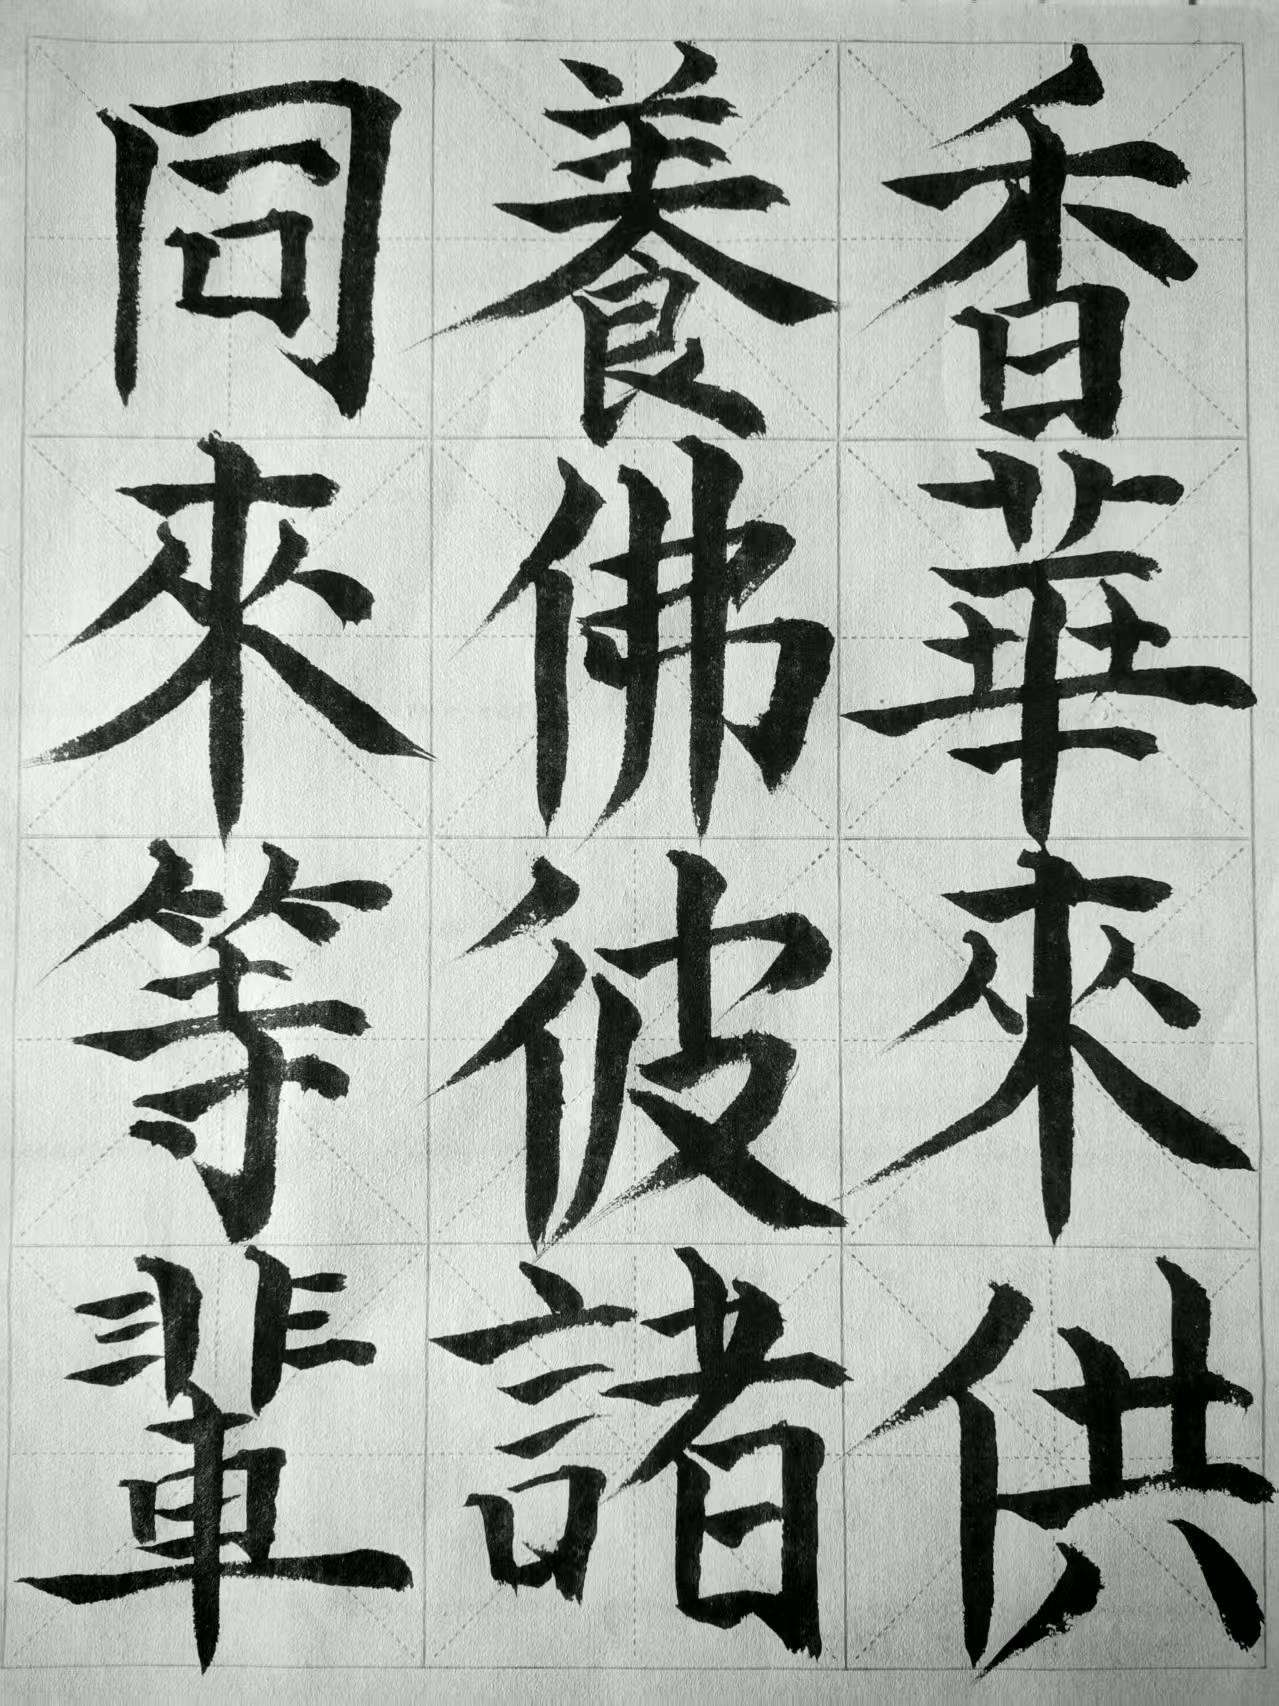 香華來供
養佛彼諸
同來等輩